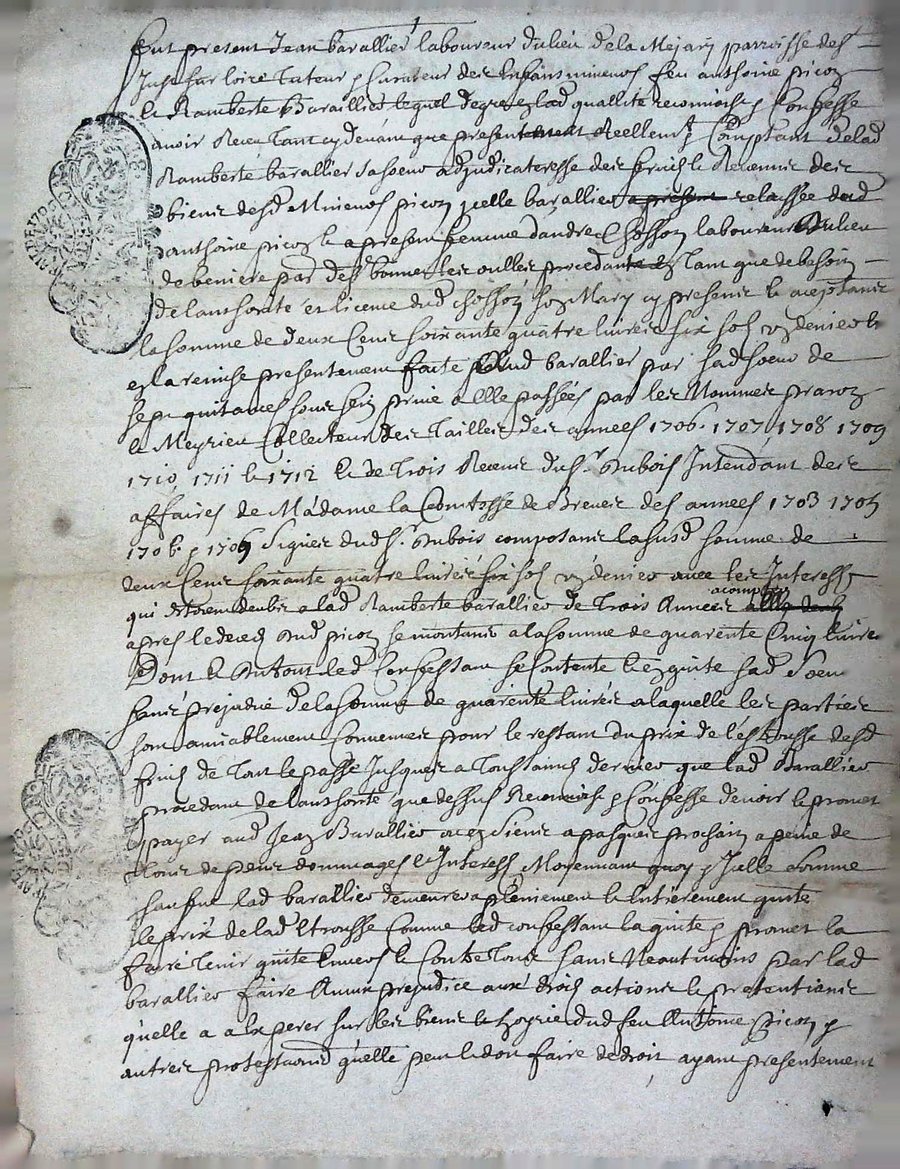 Fut present Jean barallier laboureur du lieu de la Mejary parroisse de St
Just sur loire tuteur & curateur des enfans mineurs feu anthoine picon
et Ramberte Barallier lequel de gre en lad quallite reconnoist & Confesse
avoir Receu tant cy devant que presentement Reellemt & Comptant de lad
Ramberte barallier sa soeur adjudicateresse des fruicts et Revenus des
biens desd Mineurs picon icelle barallier a present relaissée dud
anthoine picon et a present femme dandre Chosson laboureur du lieu
de beniere par des bonnes les oulles procedante en tant que de besoin
de lauthorité et licence dud Chosson son Mary cy present et aceptant
la somme de deux Cens soixante quatre livres six sols deniers et
en la remise presentement faite aud barallier par sad soeur de
sept quitances sous sein privé a elle passées par les Nommes pravoz
et Meyrieu Collecteur des tailles des années 1706. 1707 1708 1709
1710, 1711 et 1712 et de trois Receus du Sr. dubois Intendant des
affaires de Madame la Comtesse de Breves des années 1703 1705
1706. & 1709 Signes dud Sr. dubois composant la susd somme de
deux Cens soixante quatre livres six sols deniers avec les Interests
acompter
qui estoient deubs a lad Ramberte barallier de trois Années
apres le deces dud picon se montant a la somme de quarente Cinq livres
Dont et du tout led Confessant se Contente et en quite sad soeur
sans prejudice de la somme de quarente livres a laquelle les parties
sont amiablement Convenues pour le restant du prix de l'estrousse desd
fruicts de tout le passé Jusques a toussaincts dernier que lad Barallier
procedant de lauthorité que dessus Reconnoist & Confesse devoir et promet
payer aud Jean Barallier a pasques prochain a peine de
tous despens dommages et Interests Moyennant quoy & Icelle somme
lad barallier demeurera pleinement et Entierement quite
le prix de lad Etrousse Comme led confessant la quite & promet la
faire tenir quite Envers et Contre tous sans Neantmoins par lad
barallier faire Aucun prejudice aux droits actions et pretentions
qu'elle a a Exercer sur les biens et hoyrie dud feu Anthoine Picon &
autres protestations qu'elle peut et doit faire de droit ayant presentement